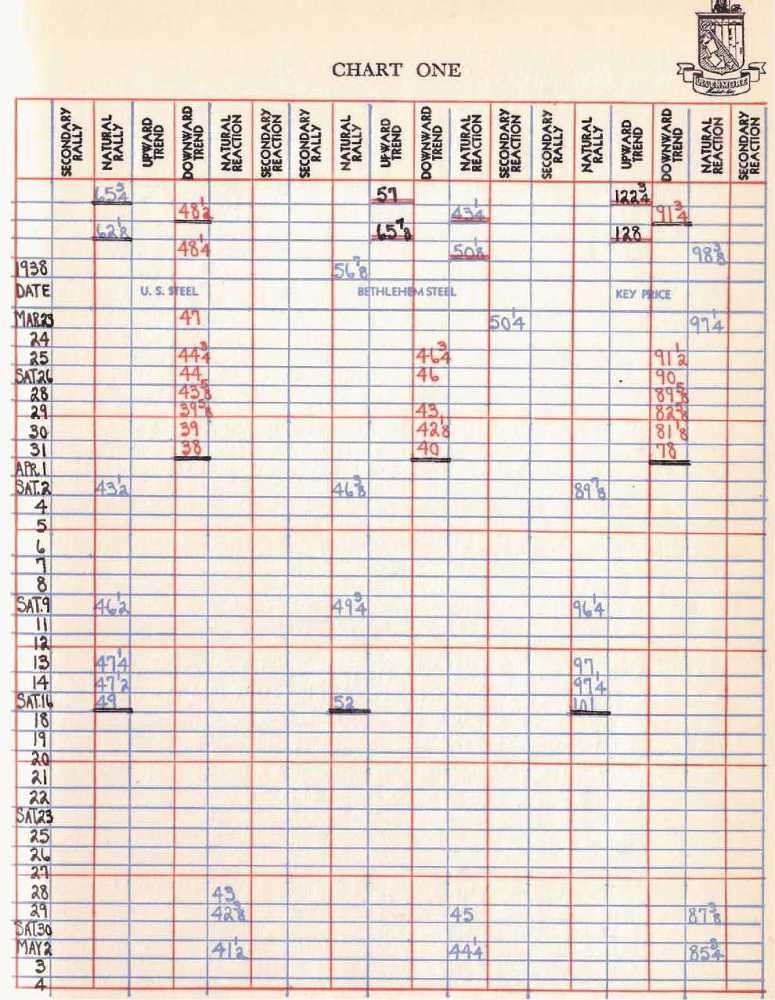 LIVERMORE
CHART ONE
SECONDARY RALLY NATURAL RALLY UPWARD TREND DOWNWARD TREND NATURAL REACTION SECONDARY REACTION SECONDARY RALLY NATURAL RALLY UPWARD TREND DOWNWARD TREND NATURAL REACTION SECONDARY REACTION SECONDARY RALLY NATURAL RALLY UPWARD TREND DOWNWARD TREND NATURAL REACTION SECONDARY REACTION
65 3/4 57 122 3/4
48 1/2 43 1/4 91 3/4
62 1/8 65 7/8 128
48 1/4 50 1/8 98 3/8
1938 56 7/8
DATE U. S. STEEL BETHLEHEM STEEL KEY PRICE
MAR.23 47 50 1/4 97 1/4
24
25 44 3/4 46 3/4 91 1/2
SAT.26 44 46 90
28 43 5/8 89 5/8
29 39 5/8 43 82 5/8
30 39 42 1/8 81 1/8
31 38 40 78
APR.1
SAT.2 43 1/2 46 3/8 89 7/8
4
5
6
7
8
SAT.9 46 1/2 49 3/4 96 1/4
11
12
13 47 1/4 97
14 47 1/2 97 1/4
SAT.16 49 52 101
18
19
20
21
22
SAT.23
25
26
27
28 43
29 42 3/8 45 87 3/8
SAT.30
MAY 2 41 1/2 44 1/4 85 3/4
3
4